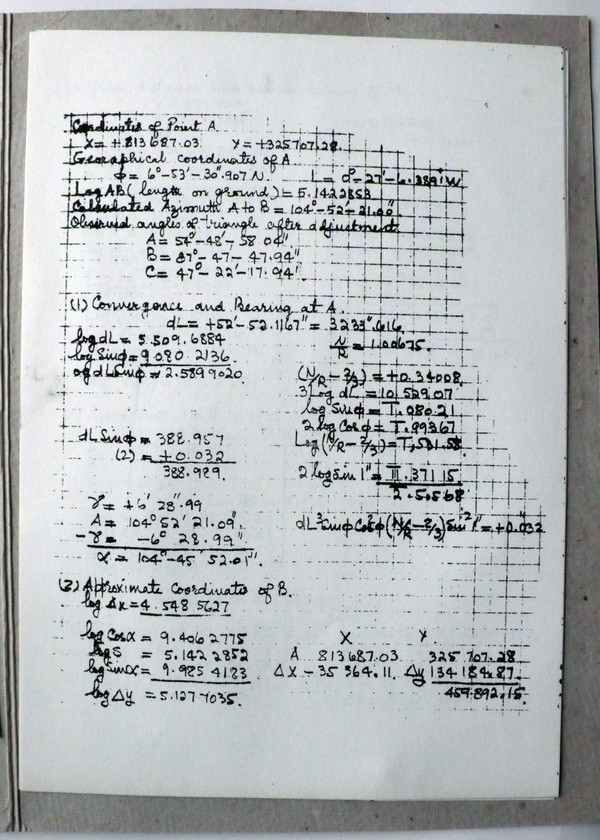 Coordinates of Point A.
X = +813687.03 Y = +325707.28.
Geographical coordinates of A.
Φ = 6°-53'-30".907 N. L = 0°-27'-6.3891" W
Log AB (length on ground) = 5.1422853
Calculated Azimuth A to B = 104°-52'-21.00"
Observed angles of triangle after adjustment
A = 54°-48'-58.04"
B = 87°-47-47.94"
C = 47°-22'-17.94"
(1) Convergence and Bearing at A.
dL = +52'-52.1167" = 3233".616
log dL = 3.509.6884
N/R = 1.00675.
log Sinφ = 9.080.2136.
og dL Sinφ = 2.589 9020
(N/R - 2/3) = +0.34008
3 Log dL = 10.529.07
log Sinφ = 1.080.21
2 log Cosφ = 1.99367
Log(N/R - 2/3) = 1,531.58
dL Sinφ = 388.957
(2) = +0.032
388.989.
2 log Sin 1" = 11.371 15
2.5.568
γ = +6' 28".99
A = 104° 52' 21.09".
-γ = -6° 28.99"
α = 104°-45' 52.01".
dL³ Sinφ Cos²φ (N/R - 2/3) Sin² 1" = +0".032
(2) Approximate Coordinates of B.
log Δx = 4.548 5627
log Cosα = 9.406 2775
X Y
log S = 5.142 2852
A 813 687.03 325 707.28
log Sinα = 9.985 4183
ΔX - 35 364.11 Δy 134 184.87
459.892.15.
log Δy = 5.127 7035.